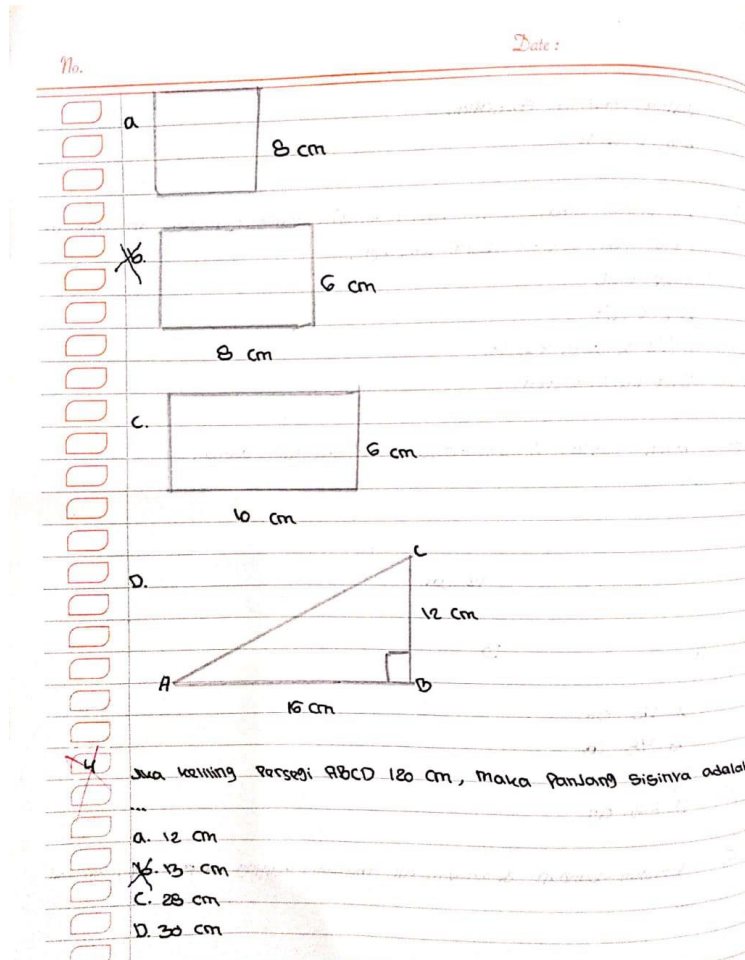 Date :
No.
a
8 cm
b.
6 cm
8 cm
C.
6 cm
10 cm
C
D.
12 cm
A
B
16 cm
4
Jika keliling Persegi ABCD 120 cm, maka Panjang sisinya adalah
...
a. 12 cm
b. 13 cm
C. 28 cm
D. 30 cm